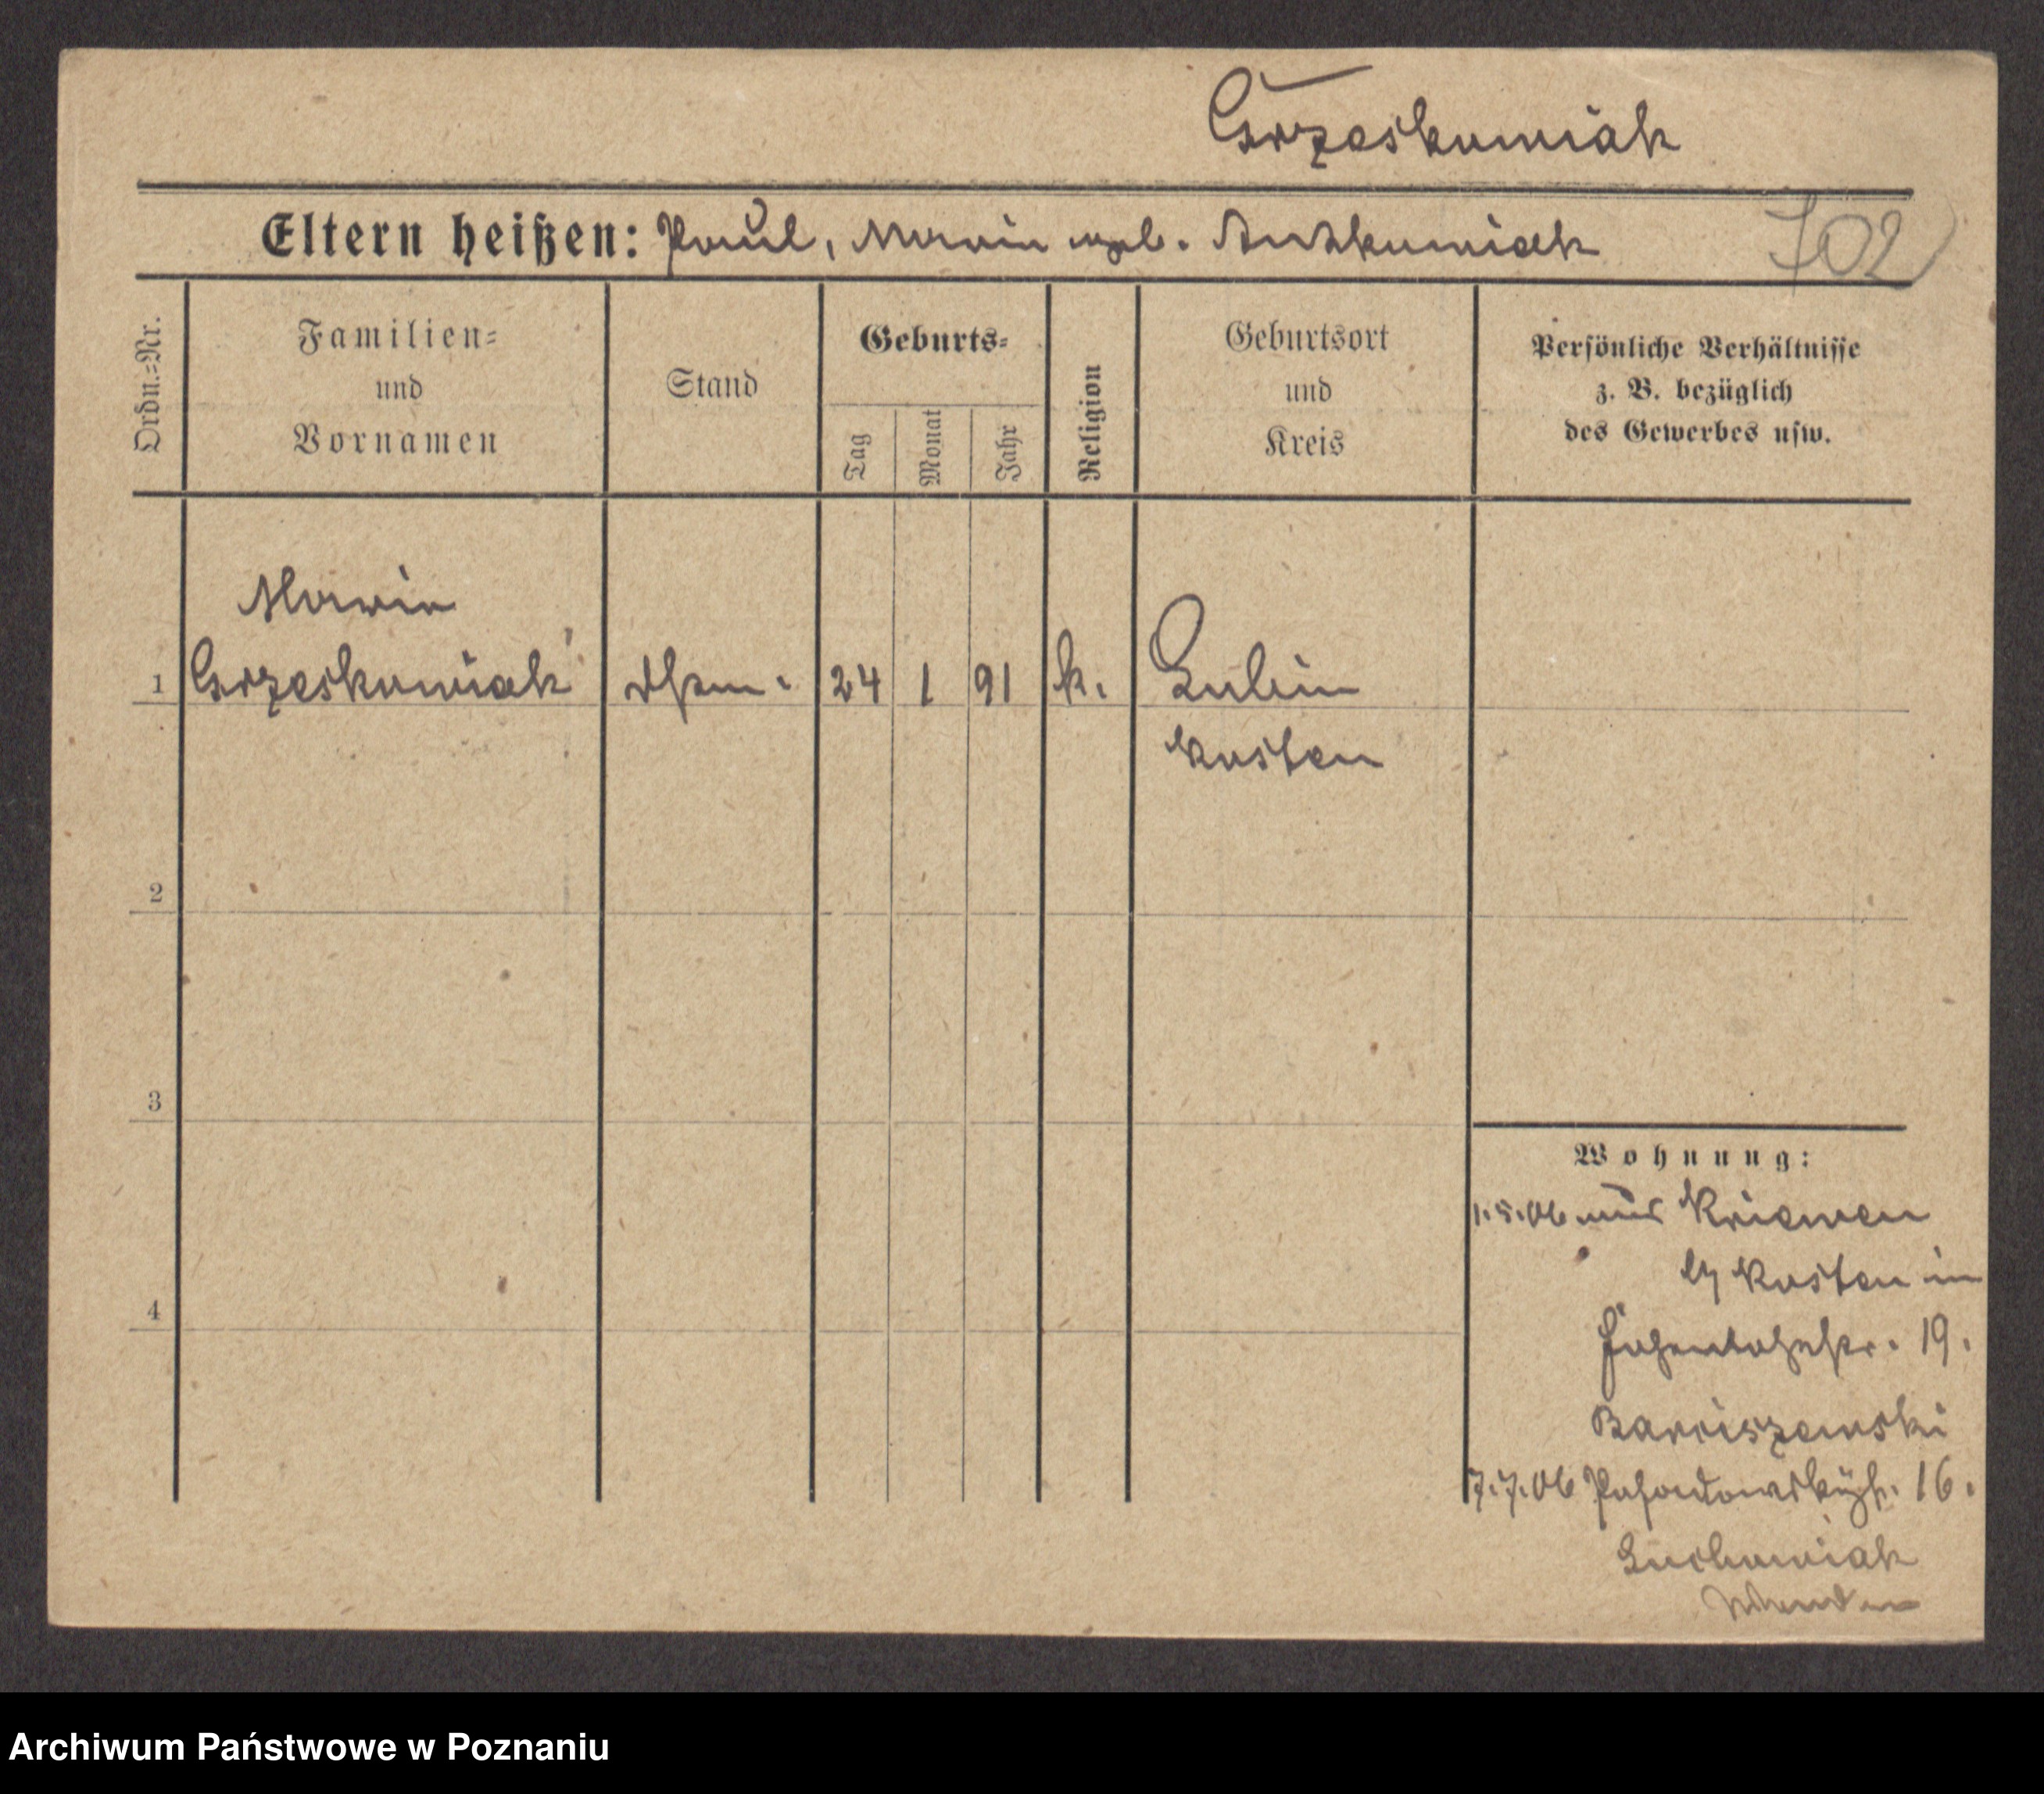 Grzeskowiak
Eltern heißen: Paul, Maria geb. Andrkowiak
702
Ordn.-Nr.
Familien-
und
Vornamen
Stand
Geburts-
Tag
Monat
Jahr
Religion
Geburtsort
und
Kreis
Persönliche Verhältnisse
z. B. bezüglich
des Gewerbes usw.
Maria
1 Grzeskowiak 24 1 91 k. Lubin
Kosten
2
3
4
Wohnung:
1.5.06 aus Kriewen
b/ Kosten in
19.
7.7.06 16.
Archiwum Państwowe w Poznaniu